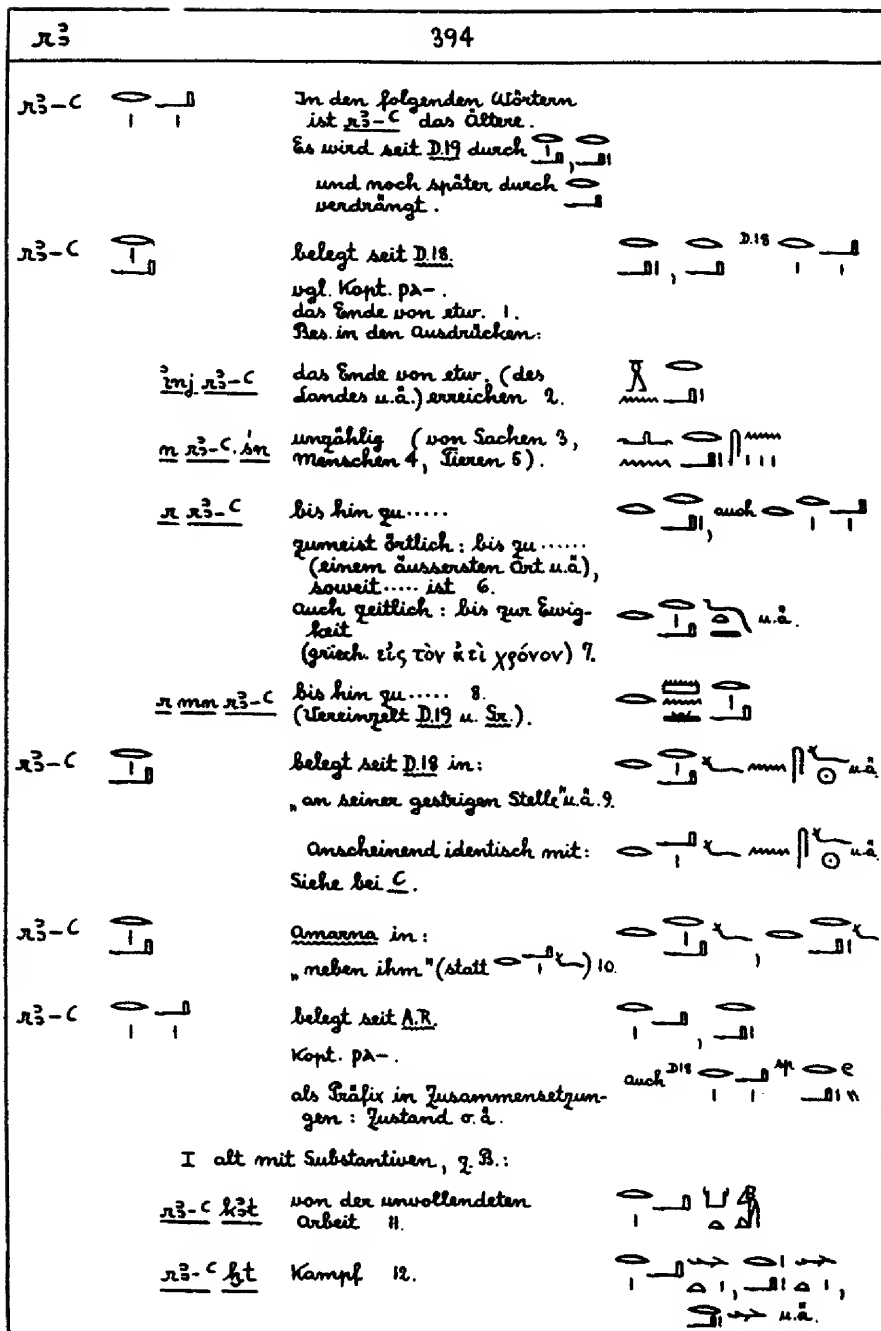 rꜣ 394
rꜣ-ꜥ In den folgenden Wörtern
ist rꜣ-ꜥ das Ältere.
Es wird seit D.19 durch 𓂋𓏤𓂝, 𓂋𓂝𓏤
und noch später durch 𓂋𓂝
verdrängt.
rꜣ-ꜥ belegt seit D.18. D.18
vgl. Kopt. ⲣⲁ-.
das Ende von etw. 1.
Bes. in den Ausdrücken:
inj rꜣ-ꜥ das Ende von etw. (des
Landes u.ä.) erreichen 2.
n rꜣ-ꜥ.śn unzählig (von Sachen 3,
Menschen 4, Tieren 5).
r rꜣ-ꜥ bis hin zu..... auch
zumeist örtlich: bis zu ......
(einem äussersten Ort u.ä),
soweit ..... ist 6.
auch zeitlich: bis zur Ewig- u.ä.
keit
(griech. εἰς τὸν ἀεὶ χρόνον) 7.
r mn rꜣ-ꜥ bis hin zu..... 8.
(Vereinzelt D.19 u. Gr.).
rꜣ-ꜥ belegt seit D.18 in: u.ä.
„an seiner gestrigen Stelle" u.ä. 9.
Anscheinend identisch mit: u.ä.
Siehe bei ꜥ.
rꜣ-ꜥ Amarna in:
„neben ihm" (statt 𓂋𓂝𓏤𓆑) 10.
rꜣ-ꜥ belegt seit A.R.
Kopt. ⲣⲁ-.
auch D18 Sp
als Präfix in Zusammensetzun-
gen: Zustand o.ä.
I alt mit Substantiven, z.B.:
rꜣ-ꜥ kꜣt von der unvollendeten
Arbeit 11.
rꜣ-ꜥ ḫt Kampf 12.
u.ä.